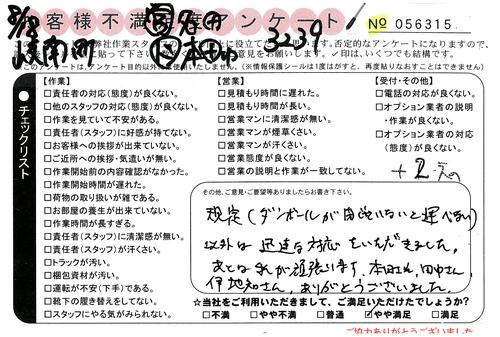 お客様不満足度アンケート
No 056315
3239
【作業】
□責任者の対応(態度)が良くない。
□他のスタッフの対応(態度)が良くない。
□作業を見ていて不安がある。
□責任者(スタッフ)に好感が持てない。
□お客様への挨拶が出来ていない。
□ご近所への挨拶・気遣いが無い。
□作業開始前の内容確認がなかった。
□作業開始時間が遅れた。
□荷物の取り扱いが雑である。
□お部屋の養生が出来ていない。
□作業時間が長すぎる。
□責任者(スタッフ)に清潔感が無い。
□責任者(スタッフ)が汗くさい。
□トラックが汚い。
□梱包資材が汚い。
□運転が不安(下手)である。
□靴下の履き替えをしてない。
□スタッフにやる気がみられない。
チェックリスト
【営業】
□見積もり時間に遅れた。
□見積もり時間が長い。
□営業マンに清潔感が無い。
□営業マンが煙草くさい。
□営業マンが汗くさい。
□営業態度が良くない。
□営業の説明と作業が一致してない。
【受付・その他】
□電話の対応が良くない。
□オプション業者の説明
・作業が良くない。
□オプション業者の対応
(態度)が良くない。
その他、ご意見・ご要望等ありましたらお書き下さい。
規定(ダンボールが
以外は迅速な対応をいただきました。
あとは私が頑張ります。本田さん、田中さん、
伊地知さん、ありがとうございました。
☆当社をご利用いただきまして、ご満足いただけたでしょうか?
□不満 □やや不満 □普通 ☑やや満足 □満足
ご協力ありがとうございました